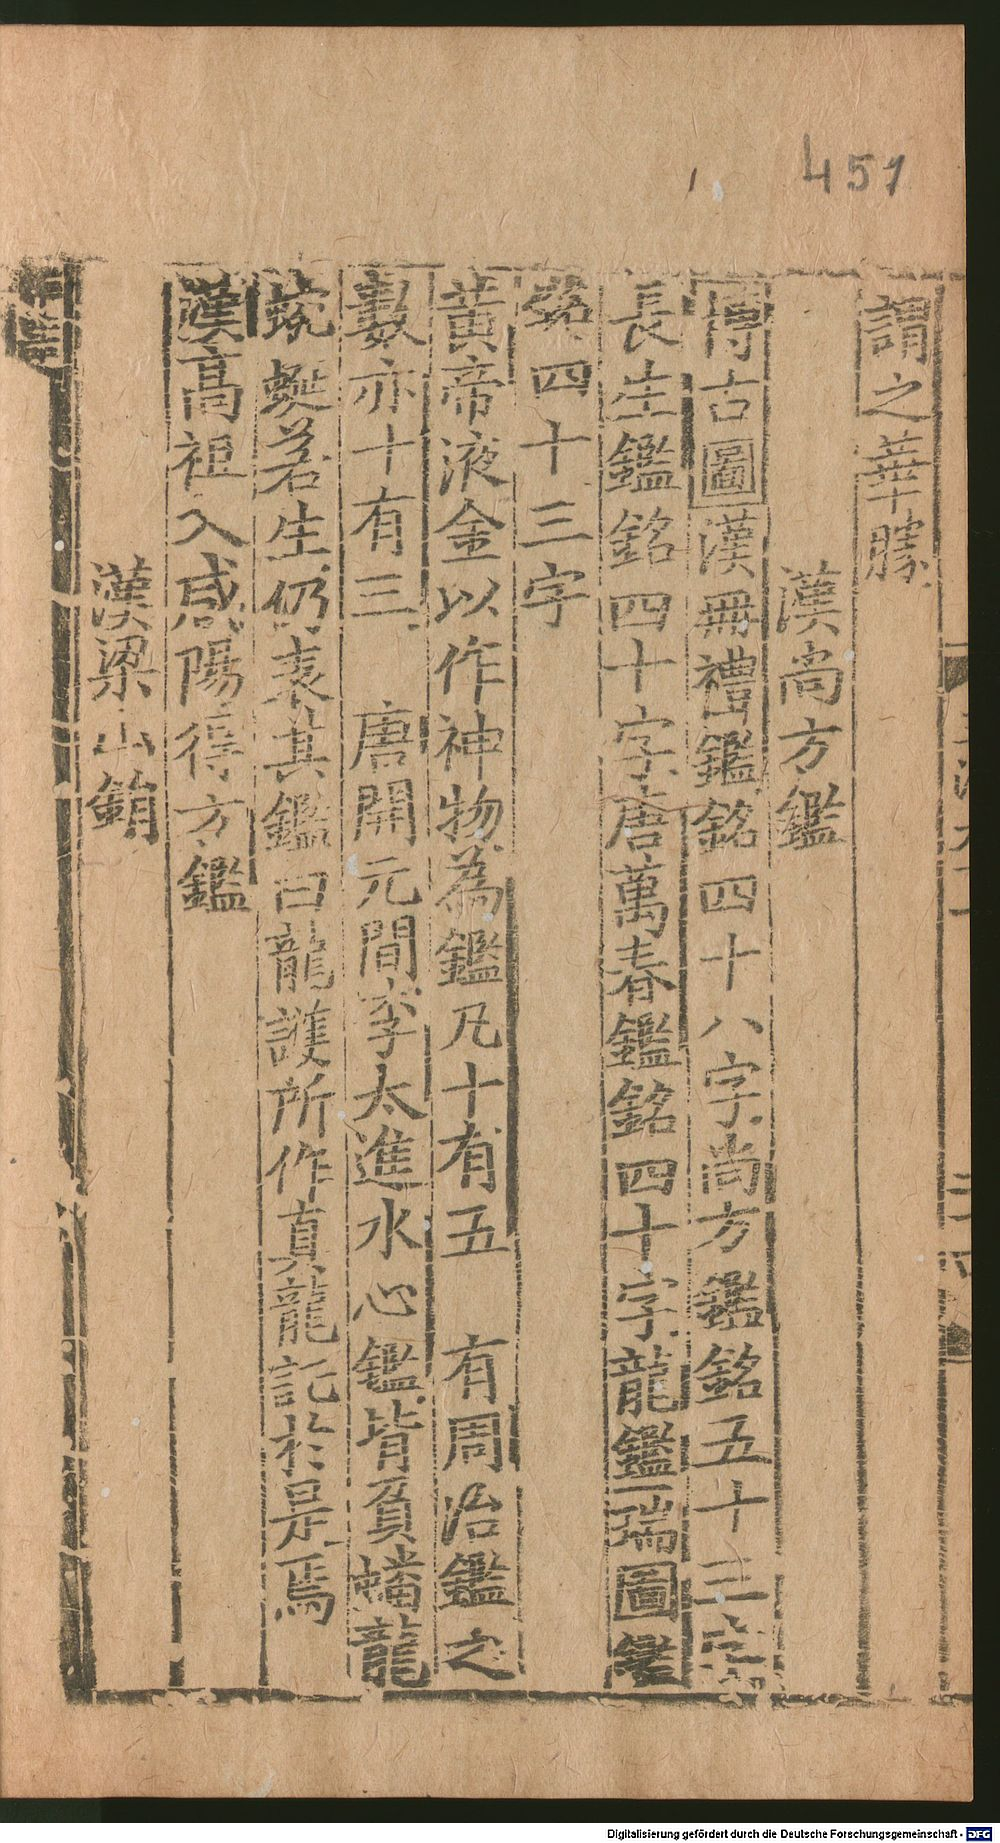 451
謂之華勝
漢尚方鑑
博古圖漢冊禮鑑銘四十八字尚方鑑銘五十三字
長生鑑銘四十字唐萬春鑑銘四十字龍鑑瑞圖鑑
銘四十三字
黃帝液金以作神物為鑑凡十有五 有周治鑑之
數亦十有三 唐開元間李太進水心鑑皆負蟠龍
蜿蜒若生仍表其鑑曰龍護所作真龍託於是焉
漢高祖入咸陽得方鑑
漢梁山鋗
Digitalisierung gefördert durch die Deutsche Forschungsgemeinschaft - DFG